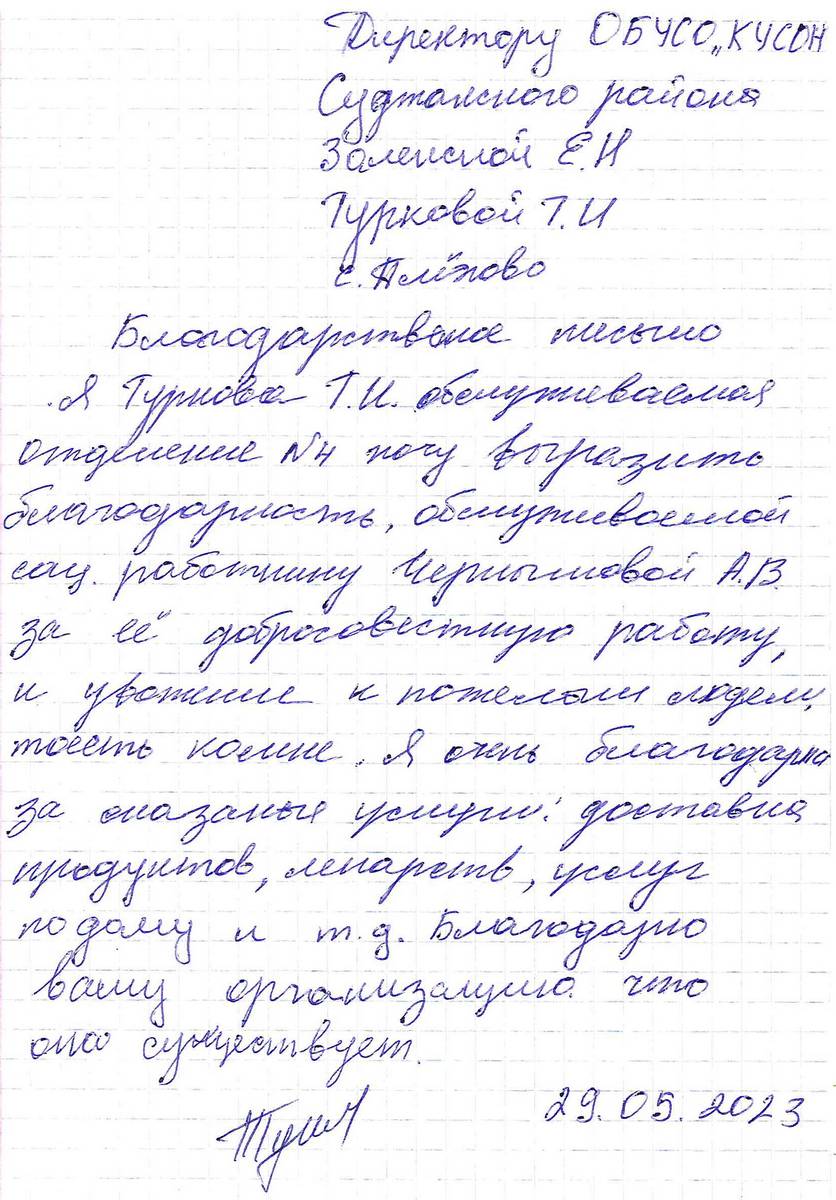 Директору ОБУСО „КЦСОН
Суджанского района
Заленской Е.Н
Турковой Т.И
с. Плёхово
Благодарственое письмо
Я Туркова Т.И. обслуживаемая
отделение №4 хочу выразить
благодарность, обслуживаемой
соц. работнику Чернышовой А.В.
за её добросовестную работу,
и уважение к пожелым людем,
тоесть комне. Я очень благодарна
за оказаные услуги: доставка
продуктов, лекарств, услуг
по дому и т.д. Благодарю
вашу организацию что
она существует.
29.05.2023